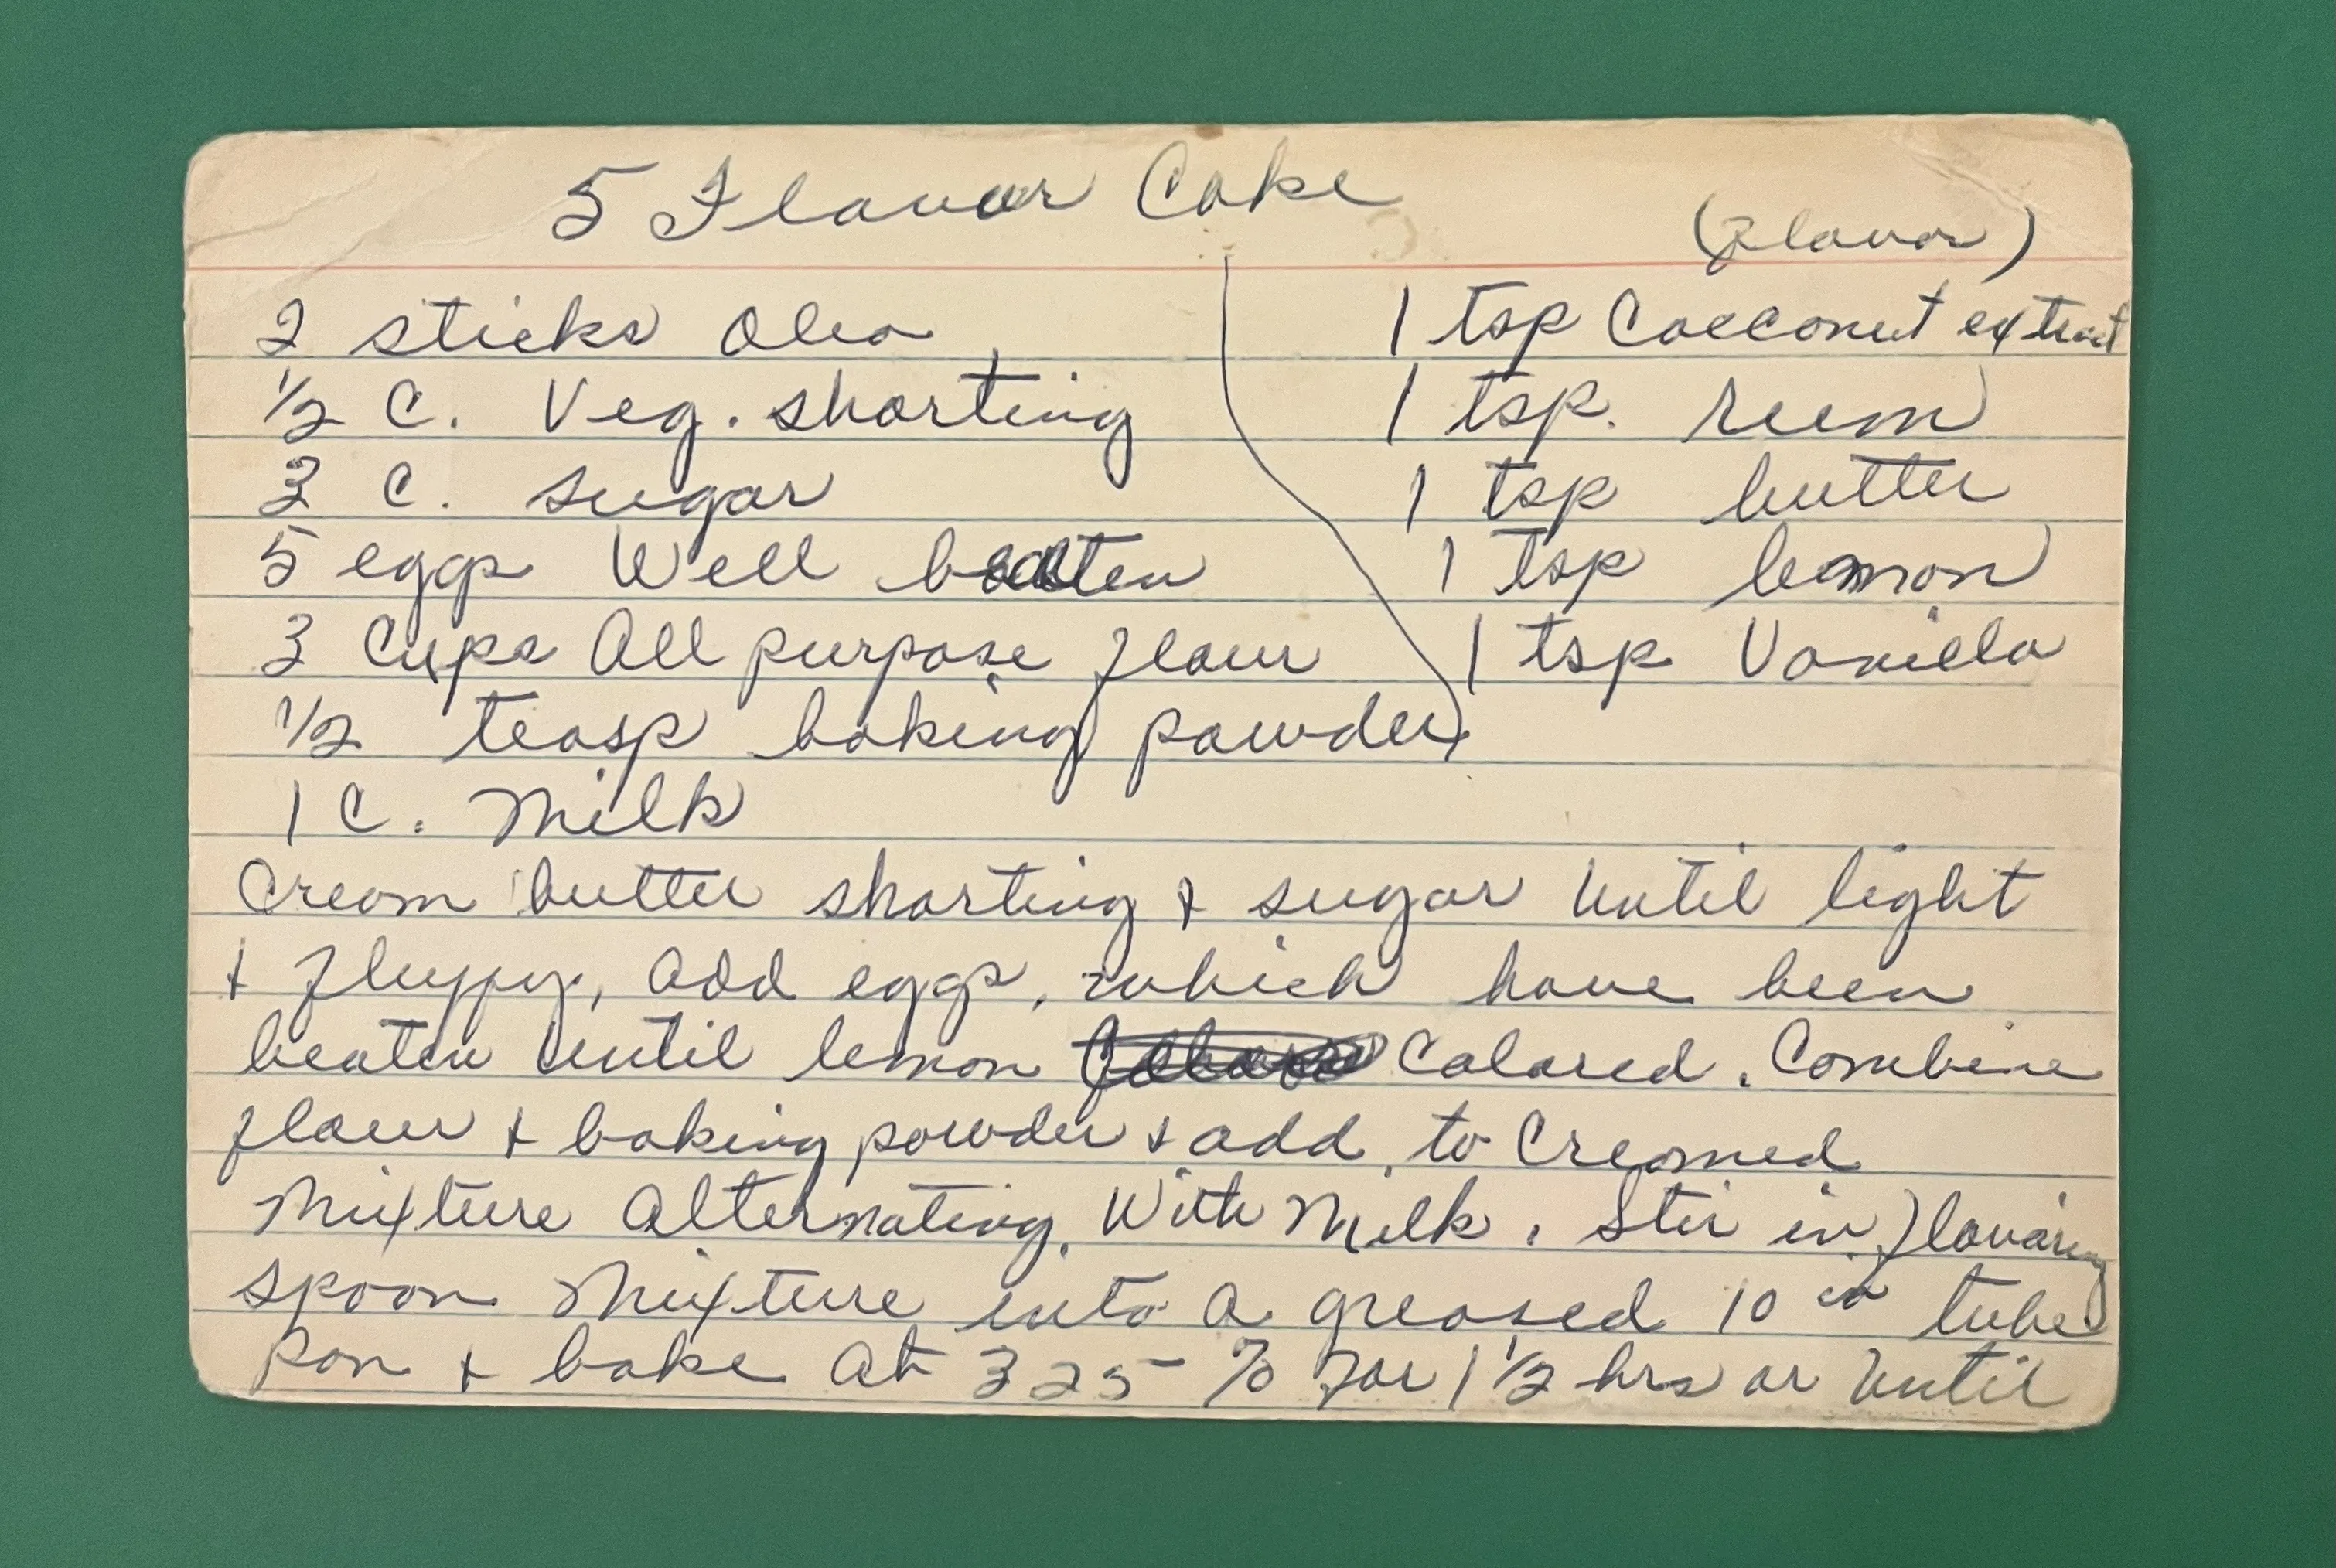 5 Flavor Cake
(flavor)
2 sticks Oleo
½ C. Veg. shorting
3 C. sugar
5 eggs Well beaten
3 Cups All purpose flour
½ teasp baking powder
1 C. Milk
1 tsp Cocconut extract
1 tsp. rum
1 tsp butter
1 tsp lemon
1 tsp Vanilla
Cream butter shorting & sugar until light
& fluffy, add eggs, which have been
beaten until lemon Colored. Combine
flour & baking powder & add to Creamed
Mixture Alternating With Milk. Stir in flavoring
spoon Mixture into a greased 10 in tube
Pan & bake at 325 % for 1 ½ hrs or until